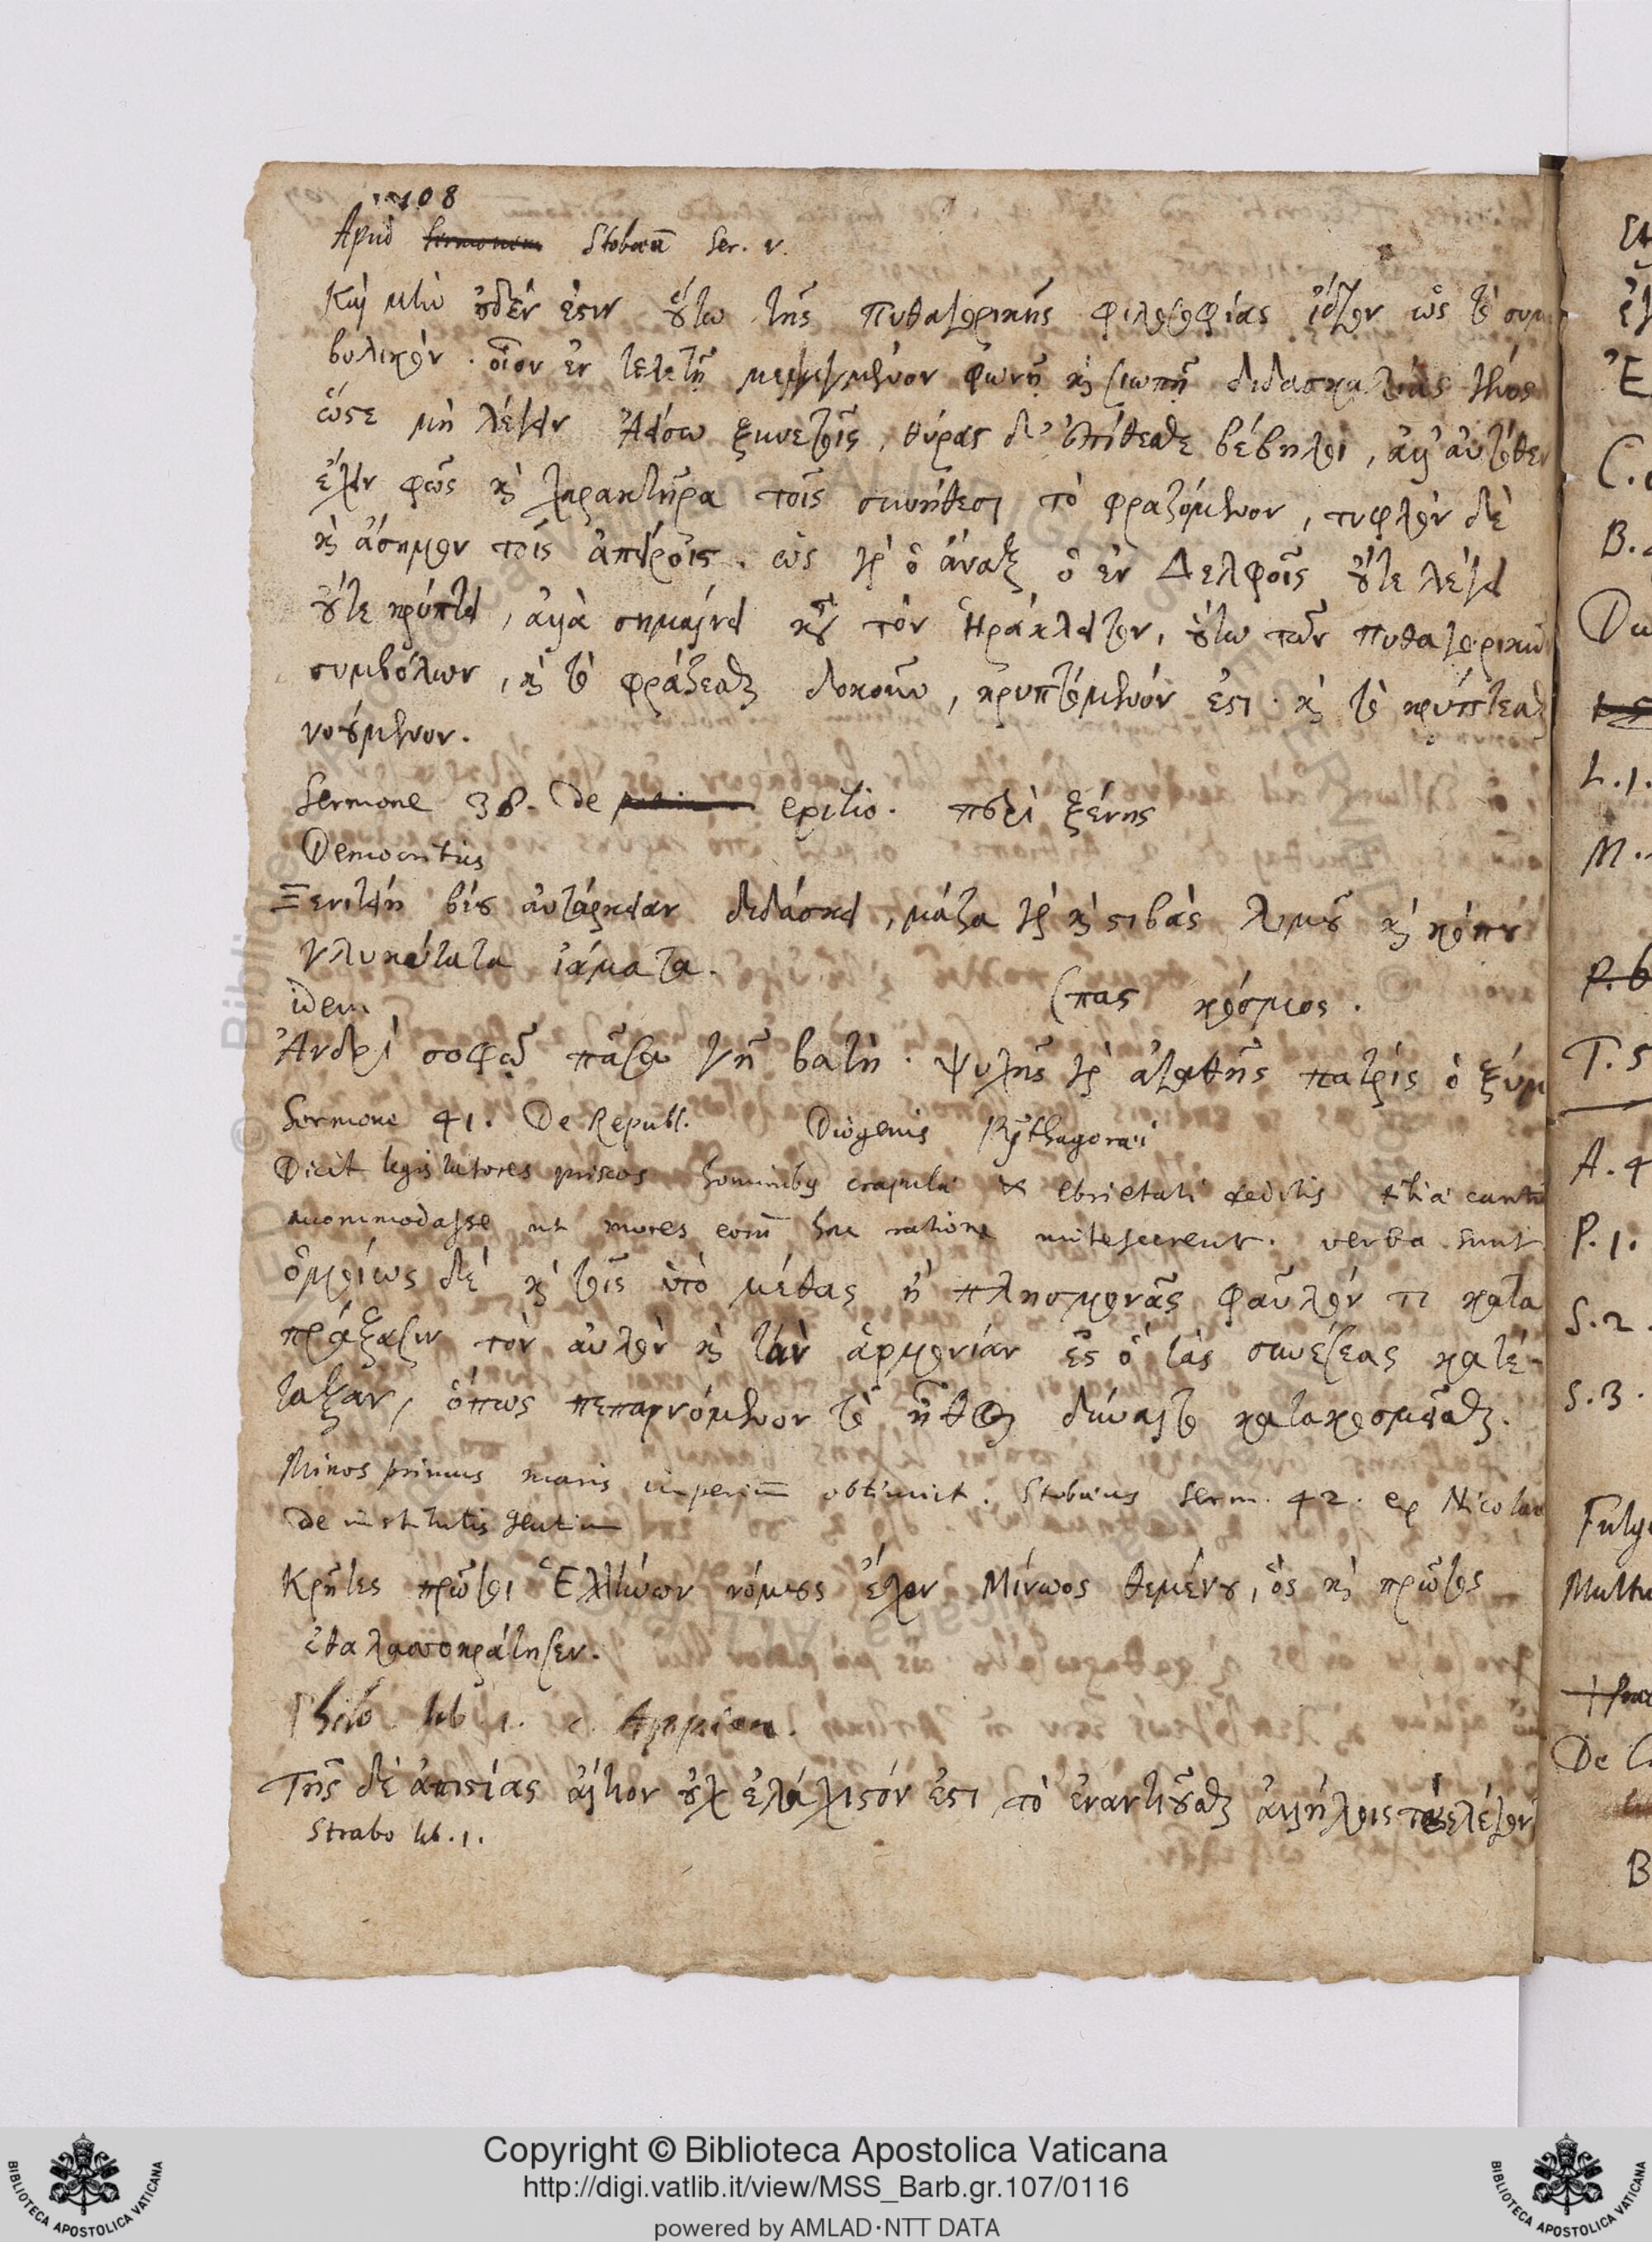 108
Apud Stobaeū Ser. v.
Καὶ μὴν οὐδέν ἐστιν οὕτω τῆς Πυθαγορικῆς φιλοσοφίας ἴδιον ὡς τὸ συμ
βολικόν. οἷον ἐν τελετῇ μεμιγμένον φωνῇ καὶ σιωπῇ διδασκαλίας γένος
ὥστε μὴ λέγειν Ἀείσω ξυνετοῖς, θύρας δ' ἐπίθεσθε βέβηλοι, ἀλλ' αὐτόθεν
ἔχειν φῶς καὶ χαρακτῆρα τοῖς συνήθεσι τὸ φραζόμενον, τυφλὸν δὲ
καὶ ἄσημον τοῖς ἀπείροις. ὡς γὰρ ὁ ἄναξ ὁ ἐν Δελφοῖς οὔτε λέγει
οὔτε κρύπτει, ἀλλὰ σημαίνει κατὰ τὸν Ἡράκλειτον, οὕτω τῶν Πυθαγορικῶν
συμβόλων, καὶ τὸ φράζεσθαι δοκοῦν, κρυπτόμενόν ἐστι. καὶ τὸ κρύπτεσθαι
νοούμενον.
Sermone 38. De exilio. περὶ ξένης
Democritus
Ξενιτείη βίου αὐτάρκειαν διδάσκει, μάζα γὰρ καὶ στιβὰς λιμοῦ καὶ κόπου
γλυκύτατα ἰάματα.
idem (πας κόσμος.
Ἀνδρὶ σοφῷ πᾶσα γῆ βατή. ψυχῆς γὰρ ἀγαθῆς πατρὶς ὁ ξύμ
Sermone 41. De Republ. Diogenis Pythagoraei
Dicit legislatores priscos hominibus crapulae & ebrietati deditis cantū
accommodasse ut mores eorū hac ratione mitescerent. verba sunt
ὁμοίως δὲ καὶ τοῖς ὑπὸ μέθας ἢ πλησμονᾶς φαῦλόν τι κατα
πράξασιν τὸν αὐλὸν καὶ τὰν ἁρμονίαν ἐς ὃ τὰς συνέσεας κατέ-
ταξαν, ὅπως πεπαρνόμενον τὸ ἦθος δύναιτο κατακοσμεῖσθαι.
Minos primus maris imperiū obtinuit. Stobaeus Serm. 42. ex Nicolao
De institutis gentium
Κρῆτες πρῶτοι Ἑλλήνων νόμους ἔχον Μίνωος θεμένου, ὃς καὶ πρῶτος
ἐθαλασσοκράτησεν.
Philo lib. 1. c. Appion.
Τῆς δὲ ἀπιστίας αἴτιον οὐχ ἐλάχιστόν ἐστι τὸ ἐναντιοῦσθαι ἀλλήλοις
Strabo lib. 1.